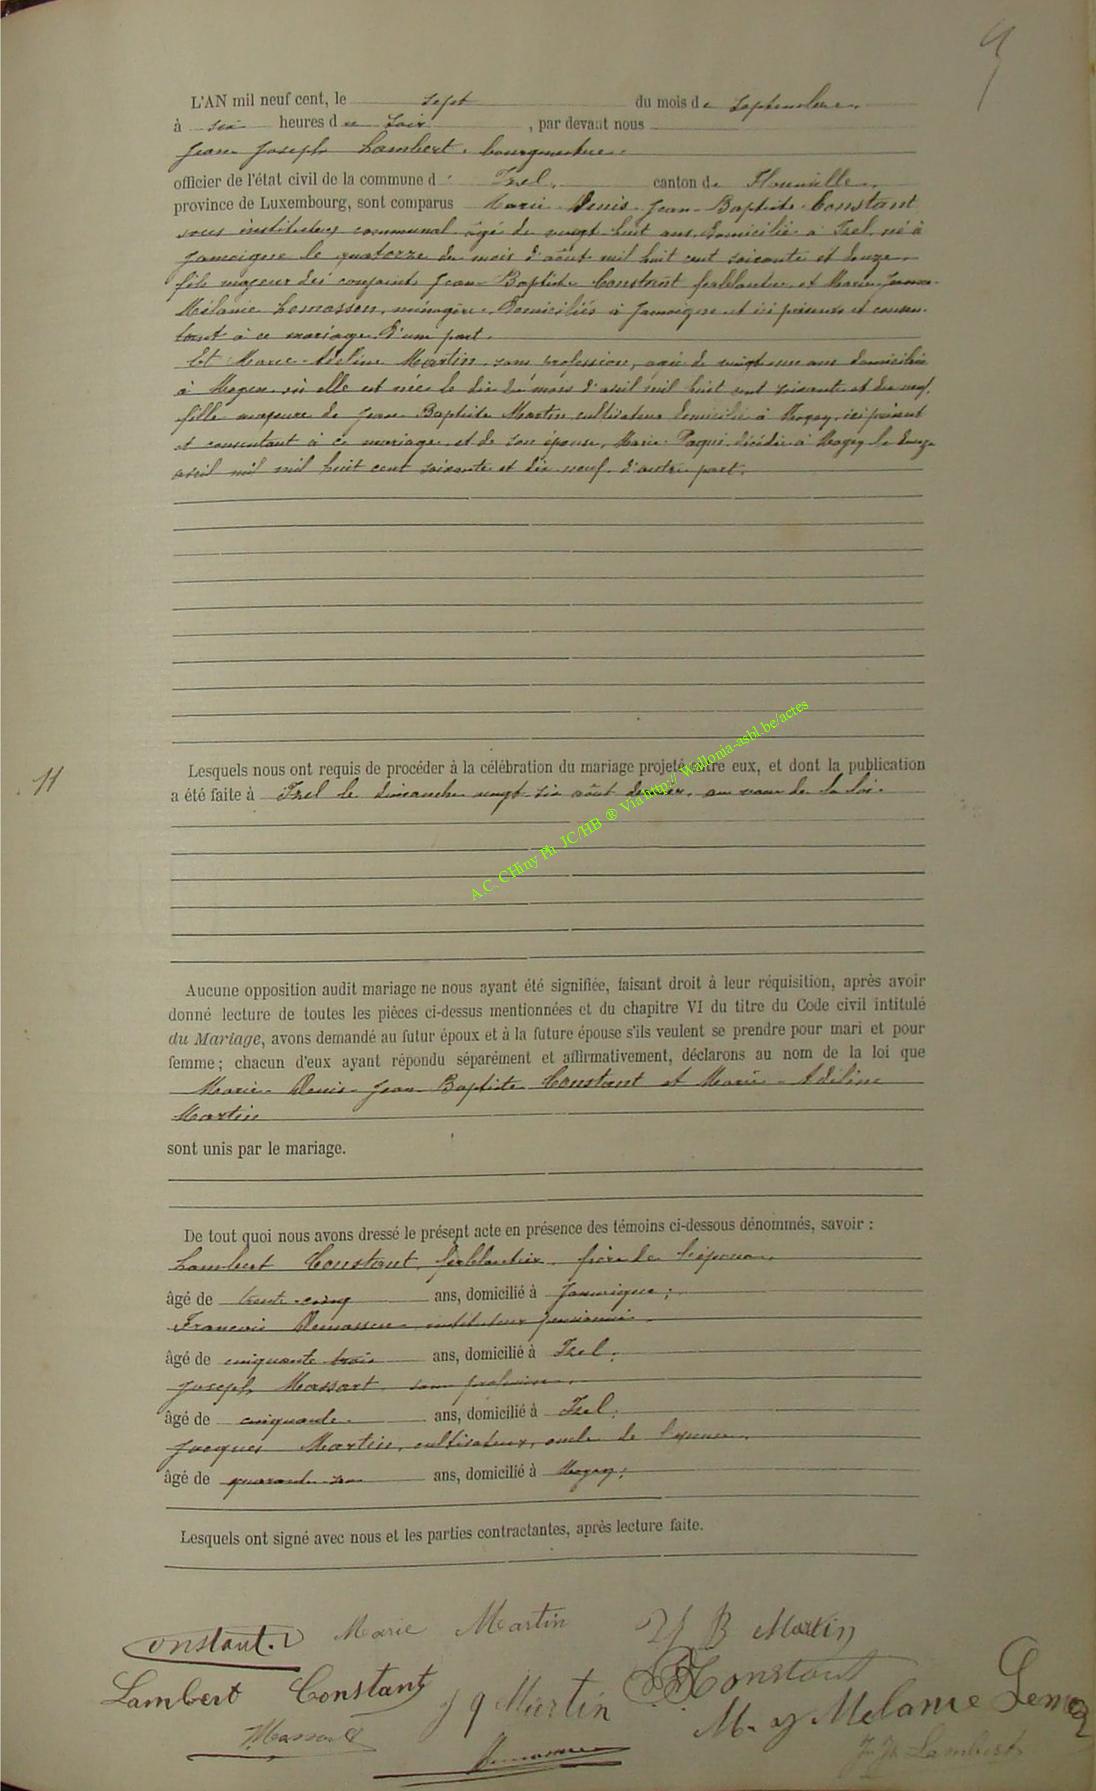 L'AN mil neuf cent, le sept du mois de septembre
à six heures du soir, par devant nous
Jean Joseph Lambert, bourgmestre
officier de l'état civil de la commune d' Izel, canton de Florenville,
province de Luxembourg, sont comparus Marie Denis Jean-Baptiste Constant
sous instituteur communal âgé de vingt huit ans, domicilié à Izel, né à
Jamoigne le quatorze du mois d'août mil huit cent soixante et douze
fils majeur des conjoints Jean-Baptiste Constant ferblantier et Marie Jeanne
Mélanie Lemasson, ménagère, domiciliés à Jamoigne et ici présents et consen-
tant à ce mariage, d'une part.
Et Marie-Adeline Martin, sans profession, agée de vingt une ans domiciliée
à Moyen où elle est née le dix du mois d'avril mil huit cent soixante et dix neuf,
fille majeure de Jean Baptiste Martin cultivateur domicilié à Moyen, ici présent
et consentant à ce mariage et de son épouse, Marie Paqui, décédée à Moyen le
avril mil mil huit cent soixante et dix neuf, d'autre part.
11
Lesquels nous ont requis de procéder à la célébration du mariage projeté entre eux, et dont la publication
a été faite à Izel le dimanche vingt six août dernier, au vœu de la loi.
A.C. CHiny Ph JC/HB ® Via http:// Wallonia-asbl.be/actes
Aucune opposition audit mariage ne nous ayant été signifiée, faisant droit à leur réquisition, après avoir
donné lecture de toutes les pièces ci-dessus mentionnées et du chapitre VI du titre du Code civil intitulé
du Mariage, avons demandé au futur époux et à la future épouse s'ils veulent se prendre pour mari et pour
femme; chacun d'eux ayant répondu séparément et affirmativement, déclarons au nom de la loi que
Marie-Denis-Jean-Baptiste Constant et Marie-Adeline
Martin
sont unis par le mariage.
De tout quoi nous avons dressé le présent acte en présence des témoins ci-dessous dénommés, savoir :
Lambert Constant, ferblantier, frère de l'époux,
âgé de trente-cinq ans, domicilié à Jamoigne;
François instituteur pensionné
âgé de cinquante trois ans, domicilié à Izel;
Joseph Massart sans profession
âgé de cinquante ans, domicilié à Izel;
Jacques Martin, cultivateur, oncle de l'épouse,
âgé de quarante ans, domicilié à Moyen;
Lesquels ont signé avec nous et les parties contractantes, après lecture faite.
Constant.D Marie Martin J B Martin
Lambert Constant J q Martin Constant
M. J Mélanie
Massart J. Jh Lambert